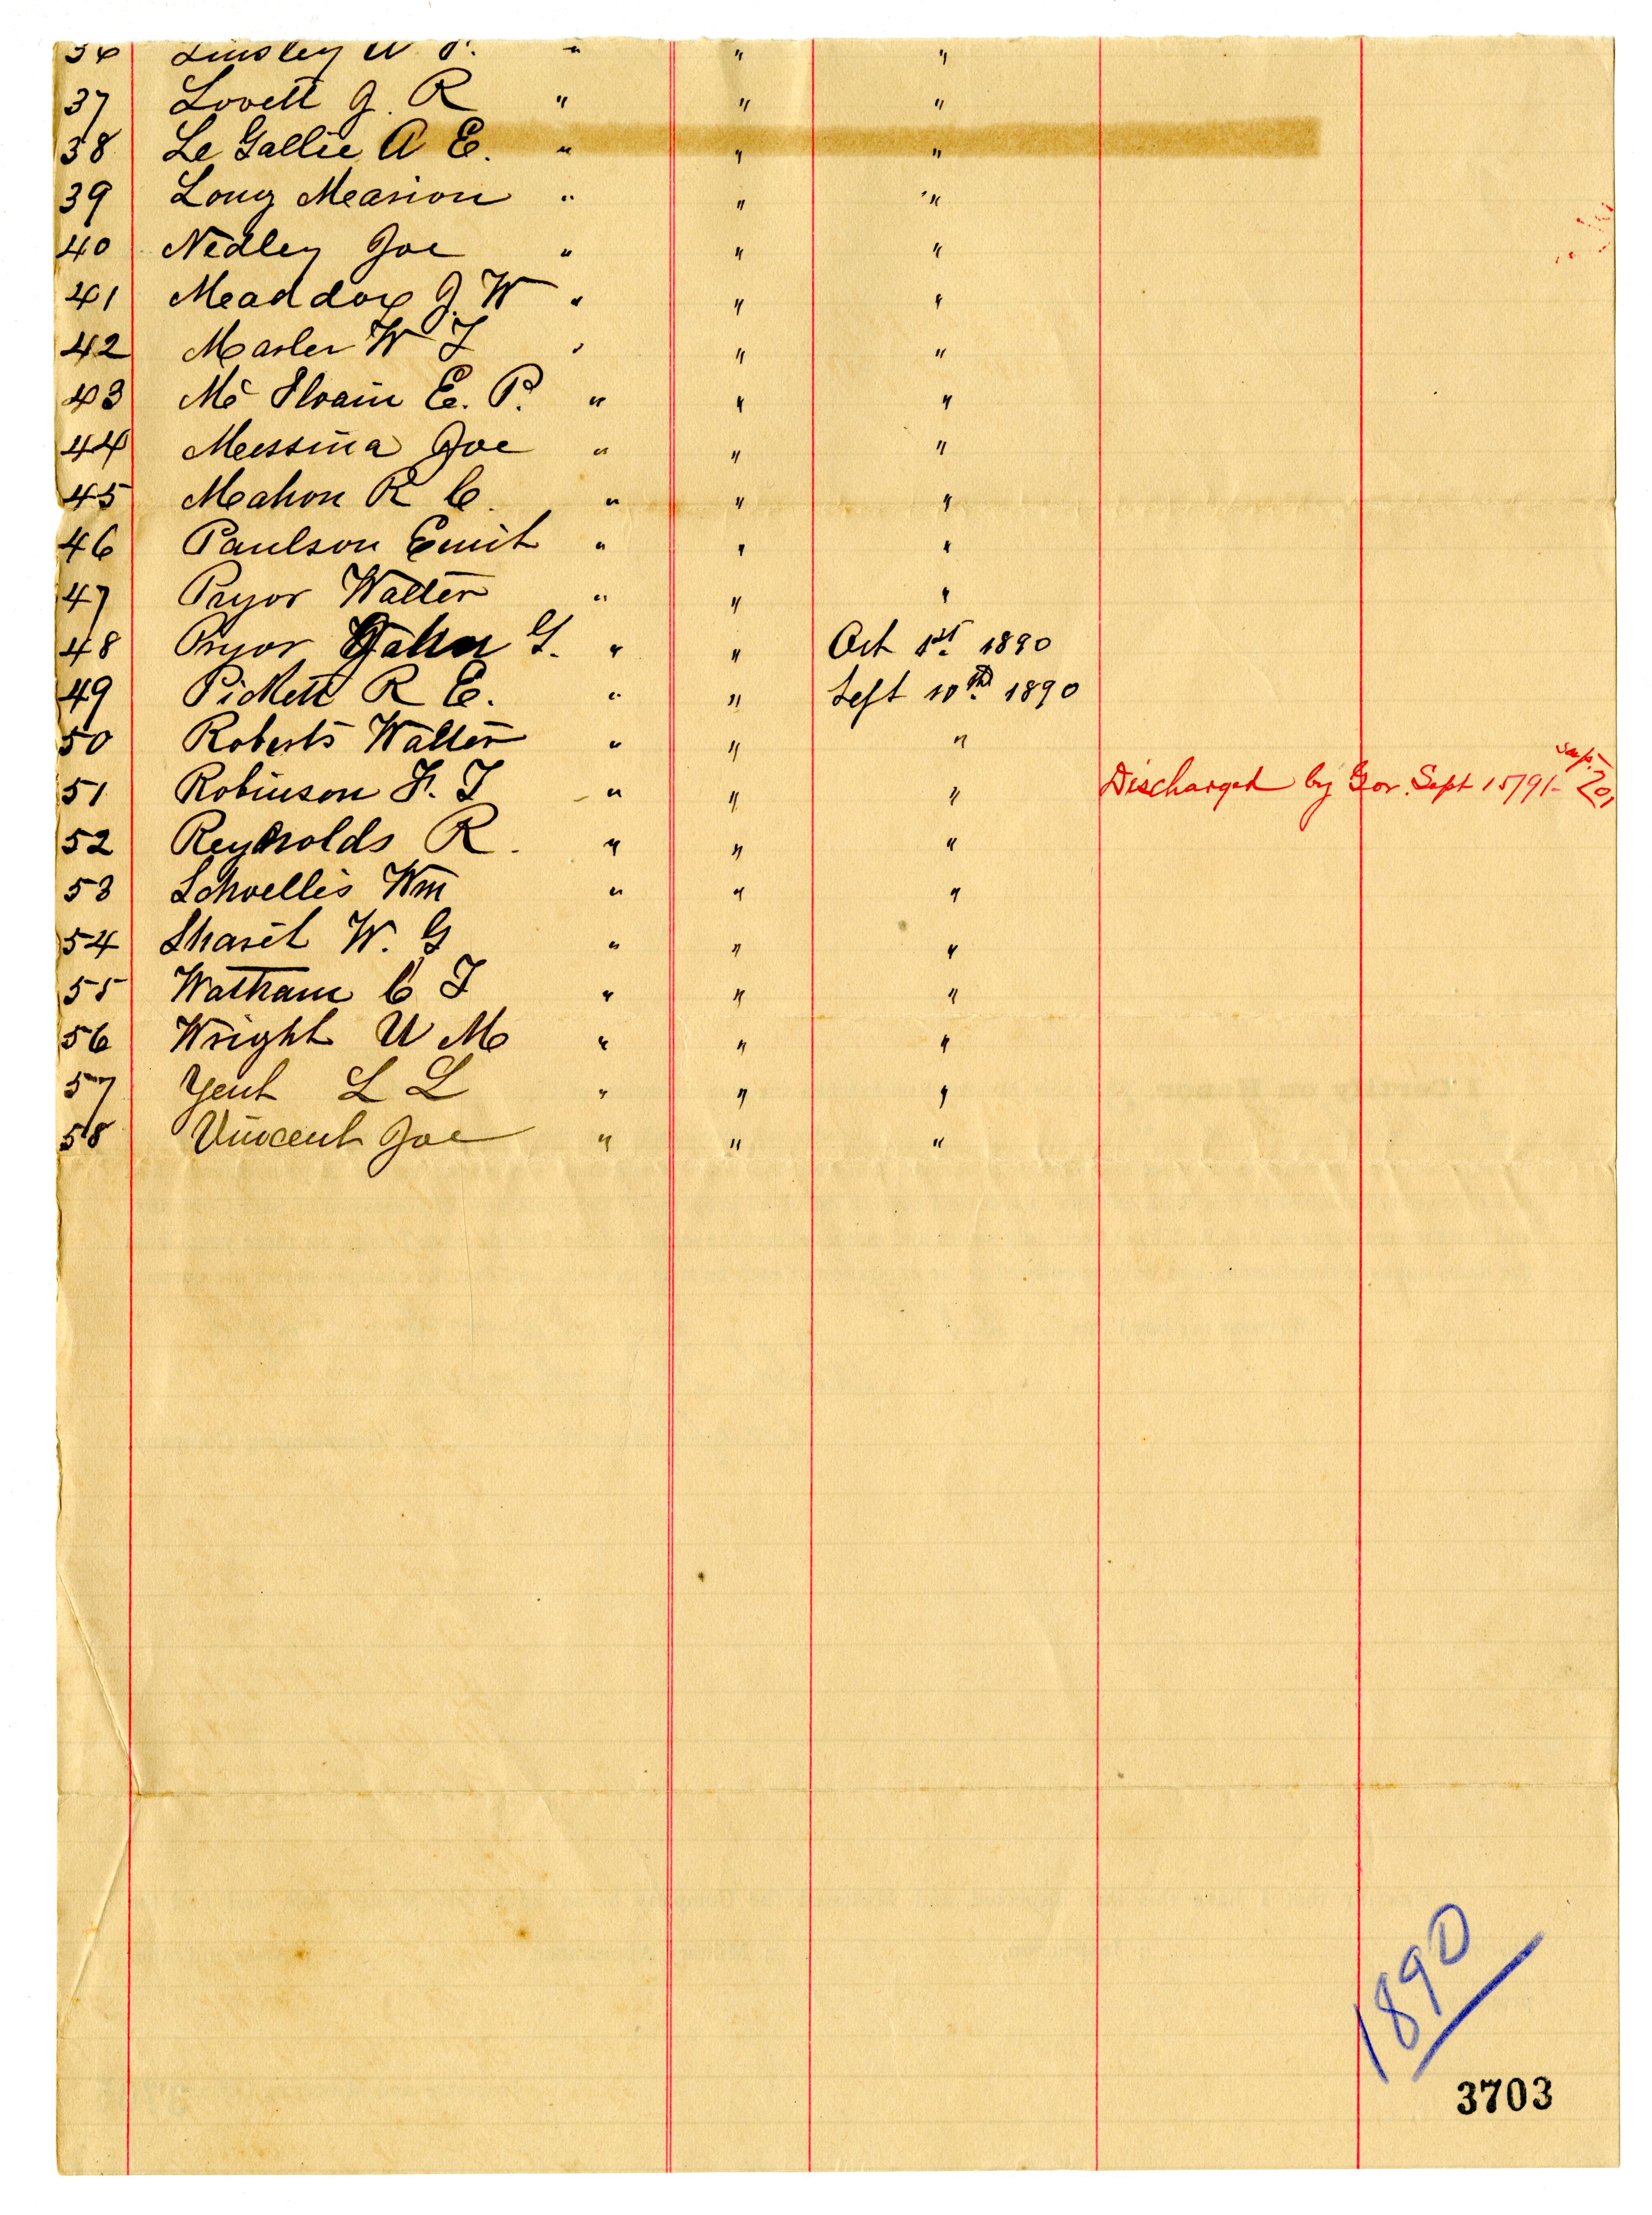 37 Lovett J. R " " "
38 Le Gallie A E. " " "
39 Long Marion " " "
40 Nedley Joe " " "
41 Maddox J. W " " "
42 Marler W T " " "
43 Mc E. P. " " "
44 Messina Joe " " "
45 Mahon R C. " " "
46 Paulson Emit " " "
47 Pryor Walter " " "
48 Pryor G. " " Oct 1st 1890
49 Pickett R E. " " Sept 10th 1890
50 Roberts Walter " " "
51 Robinson F. T " " " Discharged by Gov. Sept 15/91-
52 Reynolds R. " " "
53 Wm " " "
54 W. G " " "
55 Wathan C T " " "
56 Wright U M " " "
57 Yent L L " " "
58 Vincent Joe " " "
1890
3703